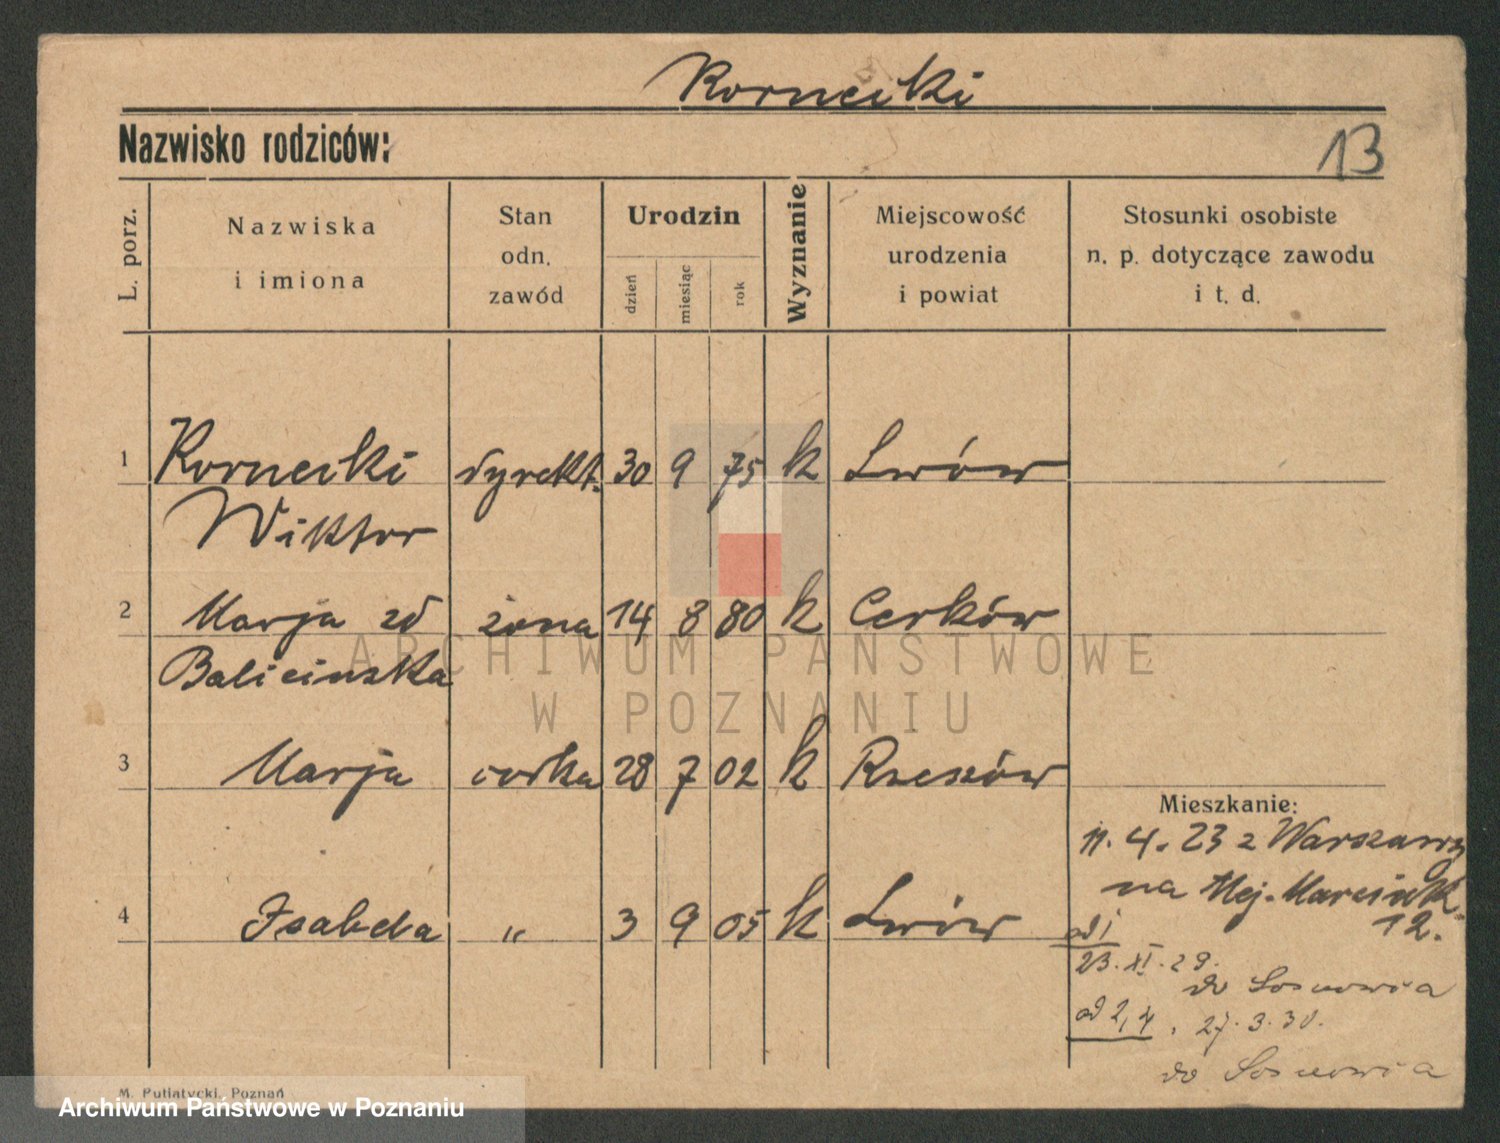 Kornecki
Nazwisko rodziców:
13
L. porz.
Nazwiska
i imiona
Stan
odn.
zawód
Urodzin
dzień
miesiąc
rok
Wyznanie
Miejscowość
urodzenia
i powiat
Stosunki osobiste
n. p. dotyczące zawodu
i t. d.
1 Kornecki dyrekt. 30 9 75 k Lwów
Wiktor
2 Marja zd żona 14 8 80 k Cerków
Balicinska
ARCHIWUM PAŃSTWOWE
W POZNANIU
3 Marja corka 28 7 02 k Rzeszów
Mieszkanie:
11. 4. 23 z Warszawy
na Alej. Marcink.
12.
4 Isabela " 3 9 05 k Lwów
od 1
23. XI. 29.
do Sosnowca
od 2, 4, 27. 3. 30.
do Sosnowca
M. Putiatycki, Poznań
Archiwum Państwowe w Poznaniu